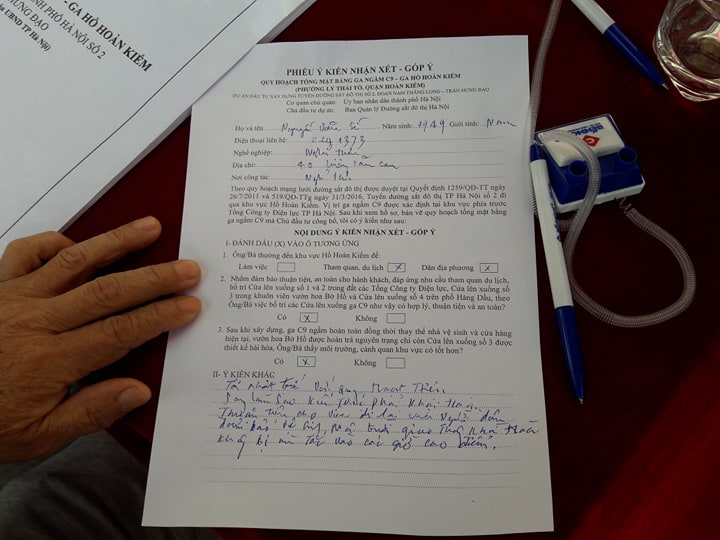 - GA HỒ HOÀN KIẾM
NH PHỐ HÀ NỘI SỐ 2
HƯNG ĐẠO
ủa UBND TP Hà Nội)
PHIẾU Ý KIẾN NHẬN XÉT - GÓP Ý
QUY HOẠCH TỔNG MẶT BẰNG GA NGẦM C9 – GA HỒ HOÀN KIẾM
(PHƯỜNG LÝ THÁI TỔ, QUẬN HOÀN KIẾM)
DỰ ÁN ĐẦU TƯ XÂY DỰNG TUYẾN ĐƯỜNG SẮT ĐÔ THỊ SỐ 2, ĐOẠN NAM THĂNG LONG – TRẦN HƯNG ĐẠO
Cơ quan chủ quản: Ủy ban nhân dân thành phố Hà Nội
Chủ đầu tư dự án: Ban Quản lý Đường sắt đô thị Hà Nội
Họ và tên: Nguyễn Văn Năm sinh: 1949 Giới tính: Nam
Điện thoại liên hệ:
Nghề nghiệp:
Địa chỉ: 40
Nơi công tác: Nghỉ hưu
Theo quy hoạch mạng lưới đường sắt đô thị được duyệt tại Quyết định 1259/QĐ-TT ngày
26/7/2011 và 519/QĐ-TTg ngày 31/3/2016, Tuyến đường sắt đô thị TP Hà Nội số 2 đi
qua khu vực Hồ Hoàn Kiếm. Vị trí ga ngầm C9 được xác định tại khu vực phía trước
Tổng Công ty Điện lực TP Hà Nội. Sau khi xem hồ sơ, bản vẽ quy hoạch tổng mặt bằng
ga ngầm C9 mà Chủ đầu tư công bố, tôi có ý kiến như sau:
NỘI DUNG Ý KIẾN NHẬN XÉT - GÓP Ý
I- ĐÁNH DẤU (X) VÀO Ô TƯƠNG ỨNG
1. Ông/Bà thường đến khu vực Hồ Hoàn Kiếm để:
Làm việc Tham quan, du lịch X Dân địa phương X
2. Nhằm đảm bảo thuận tiện, an toàn cho hành khách, đáp ứng nhu cầu tham quan du lịch,
bố trí Cửa lên xuống số 1 và 2 trong đất các Tổng Công ty Điện lực, Cửa lên xuống số
3 trong khuôn viên vườn hoa Bờ Hồ và Cửa lên xuống số 4 trên phố Hàng Dầu, theo
Ông/Bà việc bố trí các Cửa lên xuống ga C9 như vậy có hợp lý, thuận tiện và an toàn?
Có X Không
3. Sau khi xây dựng, ga C9 ngầm hoàn toàn đồng thời thay thế nhà vệ sinh và cửa hàng
hiện tại, vườn hoa Bờ Hồ được hoàn trả nguyên trạng chỉ còn Cửa lên xuống số 3 được
thiết kế hài hòa, Ông/Bà thấy môi trường, cảnh quan khu vực có tốt hơn?
Có X Không
II- Ý KIẾN KHÁC
Tôi nhất trí với quy hoạch trên.
Thuận tiện cho việc đi lại của Người dân
không bị ùn tắc vào các giờ cao điểm.